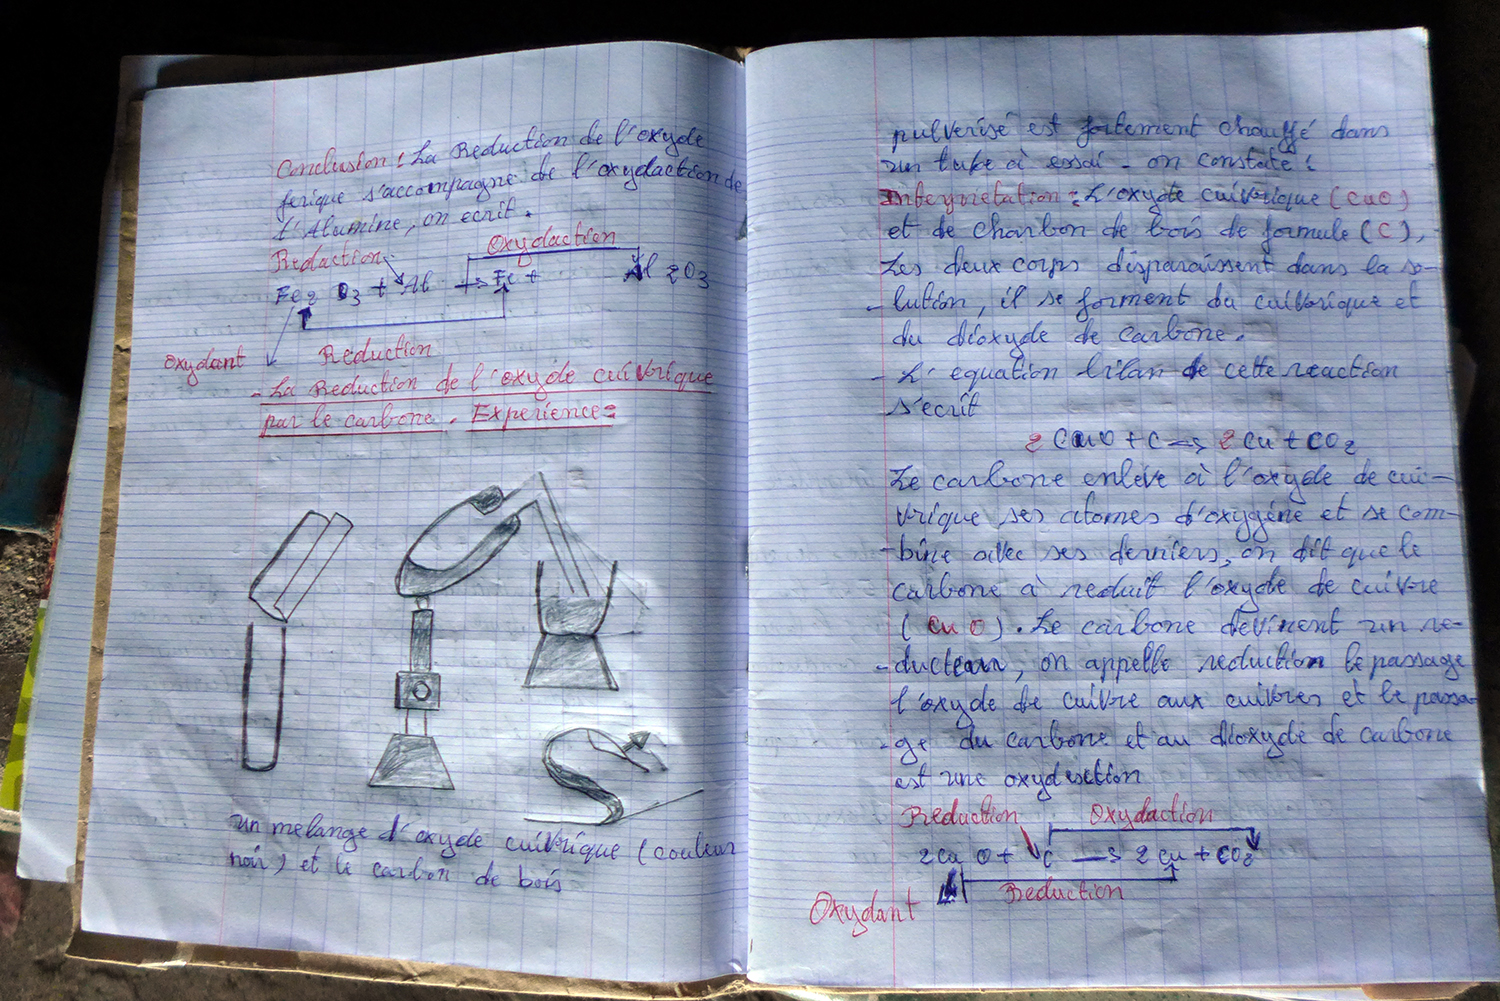 Conclusion : La Reduction de l'oxyde
ferique s'accompagne de l'oxydaction de
l'Alumine, on ecrit.
Oxydaction
Reduction
Fe2 O3 + Al → Fe + Al 2O3
Oxydant
Reduction
- La Reduction de l'oxyde cuivrique
par le carbone. Experience :
un melange d'oxyde cuivrique (couleur
noir) et le carbon de bois
pulverisé est fortement chauffé dans
un tube à essai - on constate :
Interpretation : L'oxyde cuivrique (CuO)
et de charbon de bois de formule (C),
Les deux corps disparaissent dans la so-
- lution, il se forment du cuivrique et
du dioxyde de carbone.
- L'equation bilan de cette reaction
s'ecrit
2 CuO + C → 2 Cu + CO2
Le carbone enlève à l'oxyde de cui-
vrique ses atomes d'oxygène et se com-
- bine avec ses derniers, on dit que le
carbone à reduit l'oxyde de cuivre
(CuO). Le carbone devinent un re-
- ducteur, on appelle reduction le passage
l'oxyde de cuivre aux cuivres et le passa-
- ge du carbone et au dioxyde de carbone
est une oxydaction
Reduction Oxydaction
2Cu O + C → 2 Cu + CO2
Reduction
Oxydant